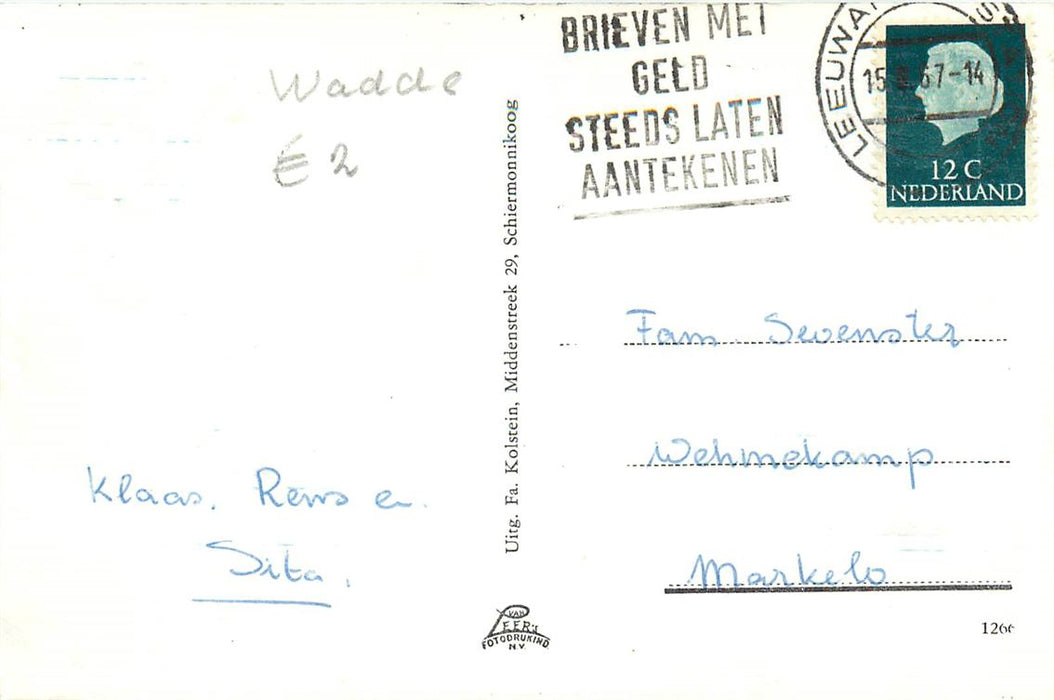 Wadde
€ 2
BRIEVEN MET
GELD
STEEDS LATEN
AANTEKENEN
67-14
12 C
NEDERLAND
Uitg. Fa. Kolstein, Middenstreek 29, Schiermonnikoog
Fam Sevenster
Wehmekamp
Markelo
Klaas, en
Sita.
VAN
LEER's
FOTODRUKIND.
N.V.